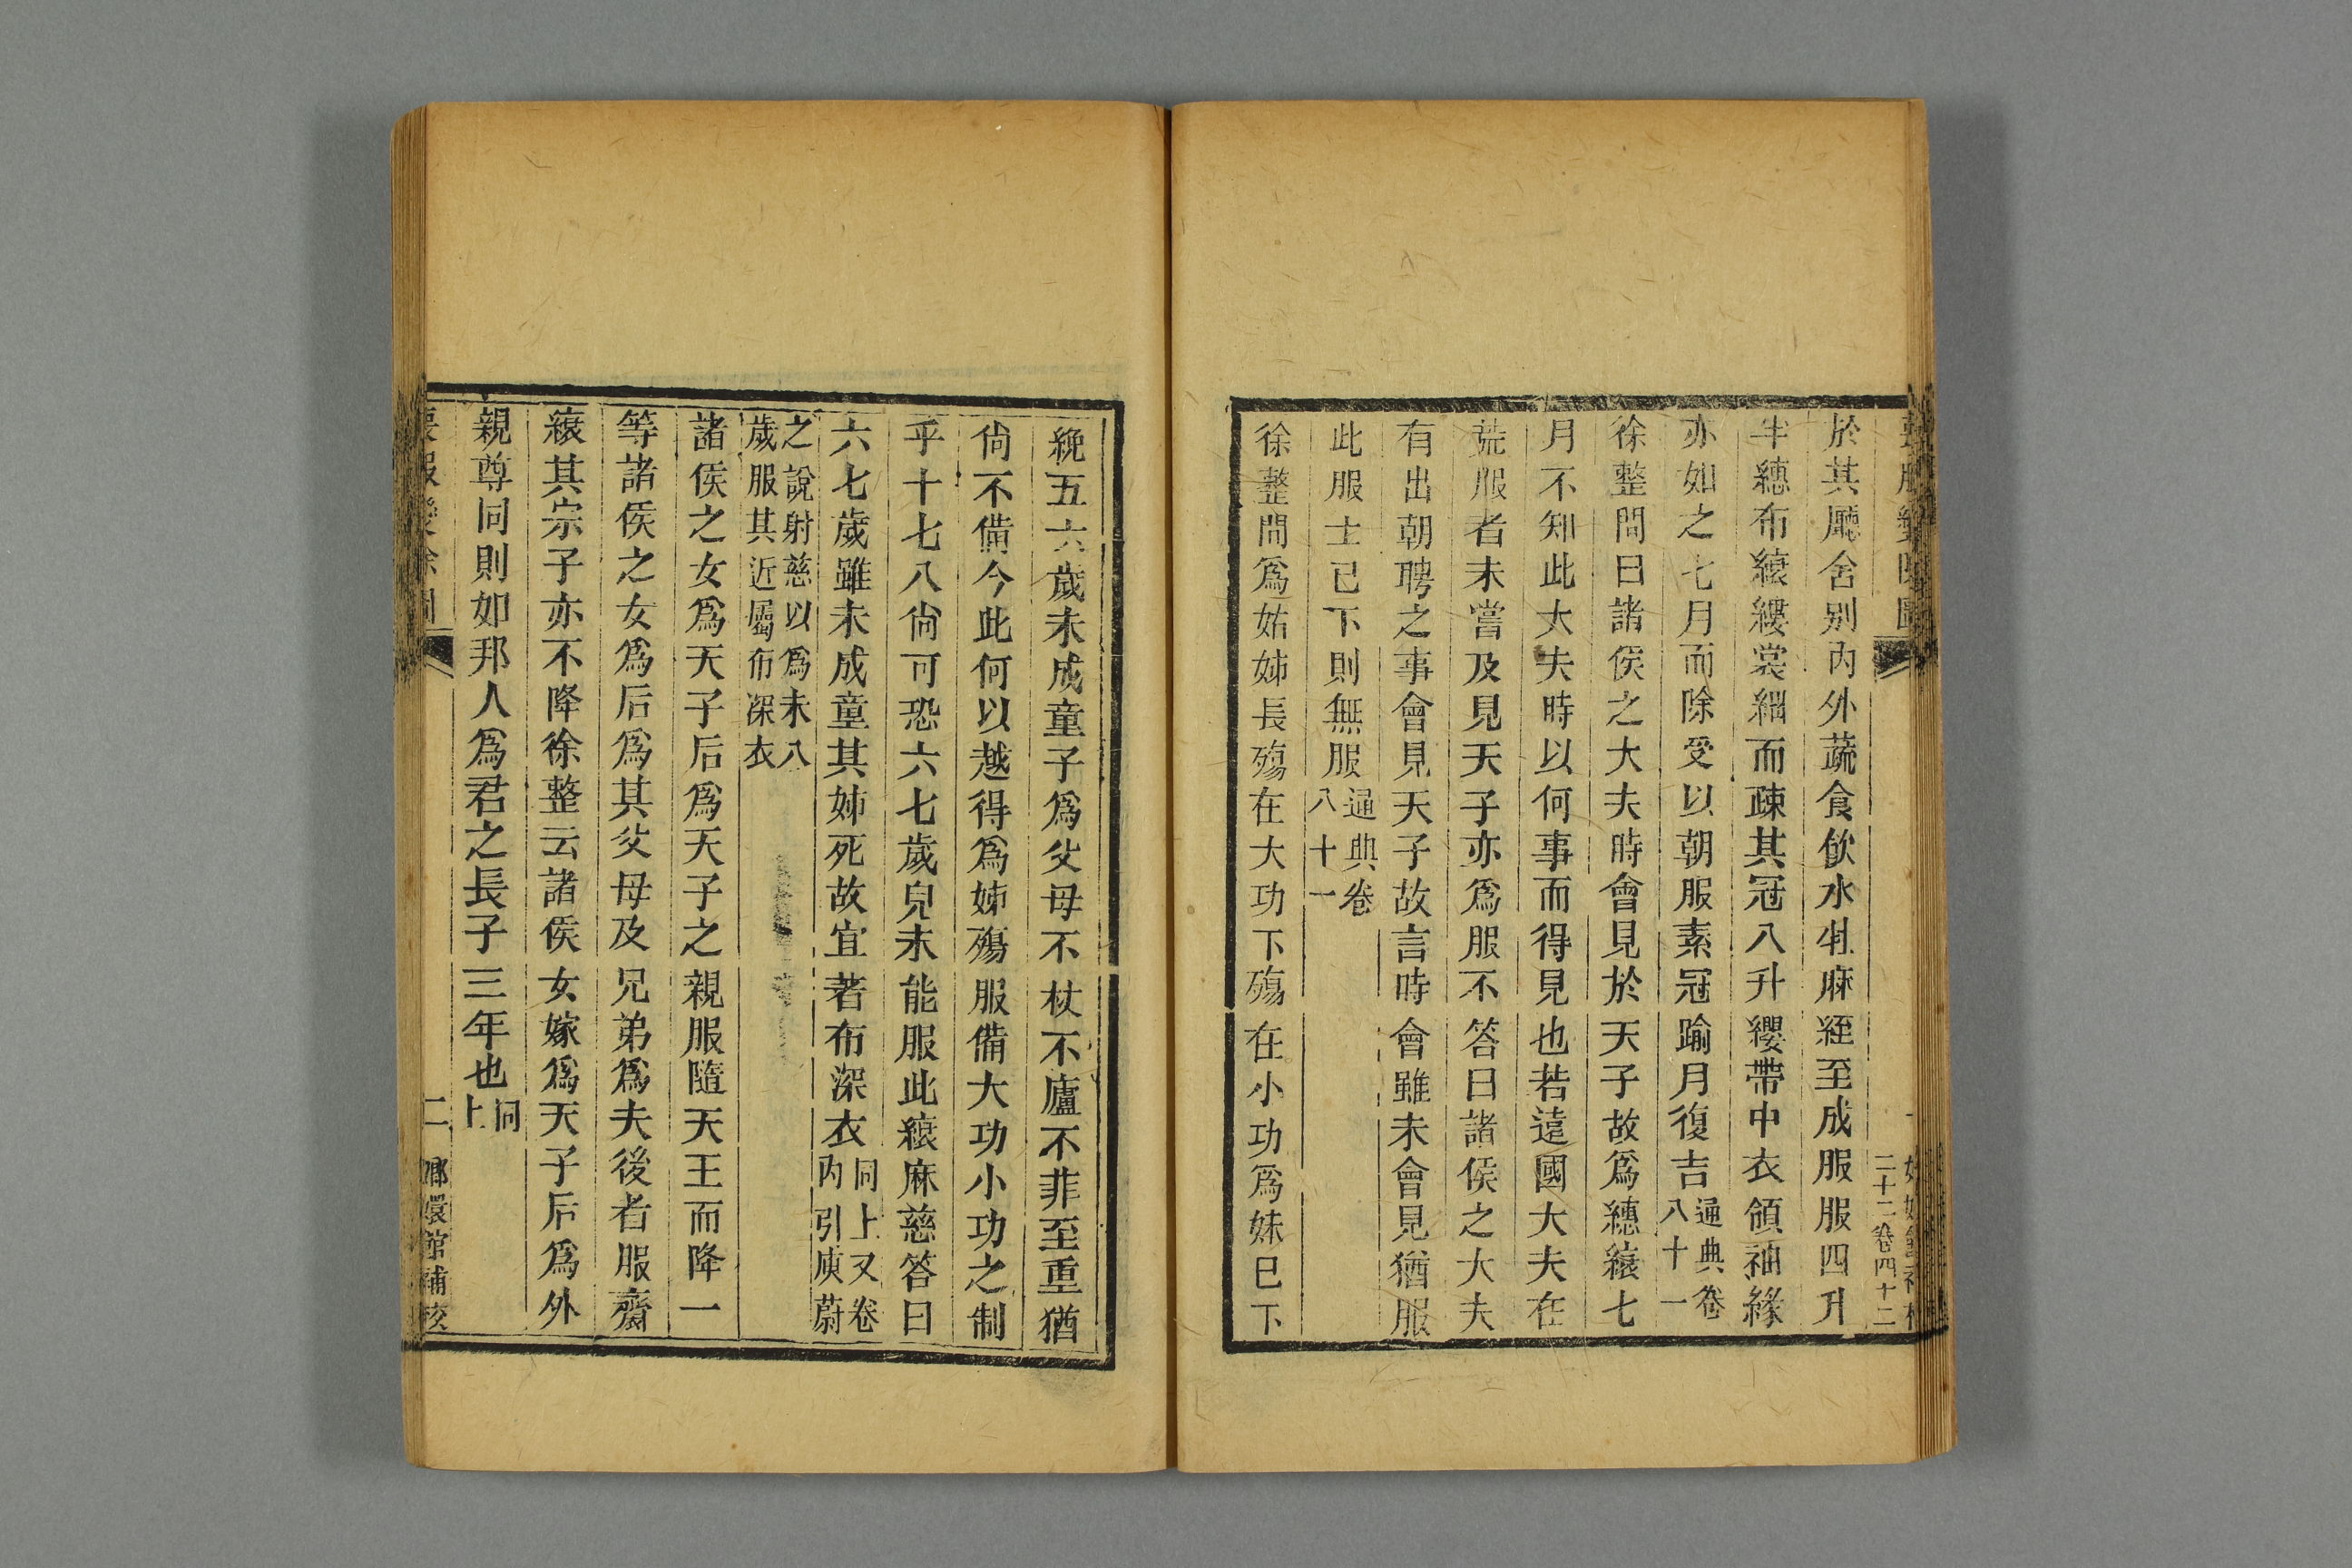 二十二卷四十二
於其廳舍別內外蔬食飮水牡麻絰至成服服四升
半繐布縗縷裳細而疎其冠八升纓帶中衣領袖緣
亦如之七月而除受以朝服素冠踰月復吉通典卷八十一
徐整問曰諸侯之大夫時會見於天子故爲繐縗七
月不知此大夫時以何事而得見也若遠國大夫在
荒服者未嘗及見天子亦爲服不答曰諸侯之大夫
有出朝聘之事會見天子故言時會雖未會見猶服
此服士已下則無服通典卷八十一
徐整問爲姑姊長殤在大功下殤在小功爲妹已下
絻五六歲未成童子爲父母不杖不廬不菲至重猶
尙不備今此何以越得爲姊殤服備大功小功之制
乎十七八尙可恐六七歲兒未能服此縗麻慈答曰
六七歲雖未成童其姊死故宜著布深衣同上又卷內引庾蔚
之說射慈以爲未八歲服其近屬布深衣
諸侯之女爲天子后爲天子之親服隨天王而降一
等諸侯之女爲后爲其父母及兄弟爲夫後者服齋
縗其宗子亦不降徐整云諸侯女嫁爲天子后爲外
親尊同則如邦人爲君之長子三年也同上
喪服變除圖 二 嫏嬛館補校